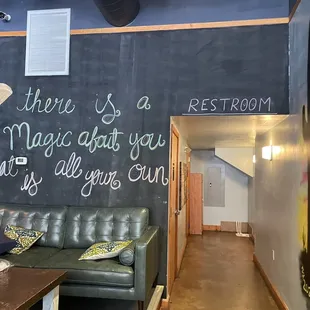 there is a
Magic about you
that is all your own
RESTROOM